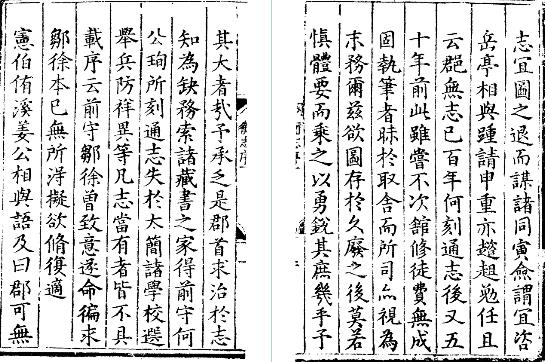 其大者哉予承乏是郡首求治於志
知為缺務索諸藏書之家得前守何
公珣所刻通志失於太簡諸學校選
舉兵防祥異等凡志當有者皆不具
載序云前守鄒徐曾致意遂命徧求
鄒徐本已無所得擬欲脩復適
憲伯侑溪姜公相與語及曰郡可無
志宜圖之退而謀諸同寅僉謂宜咨
岳亭相與踵請申重亦趑趄勉任且
云郡無志已百年何刻通志後又五
十年前此雖嘗不次舘修徒費無成
固執筆者昧於取舍而所司亦視為
末務爾兹欲圖存於久廢之後莫若
慎體要而乘之以勇銳其庶幾乎予